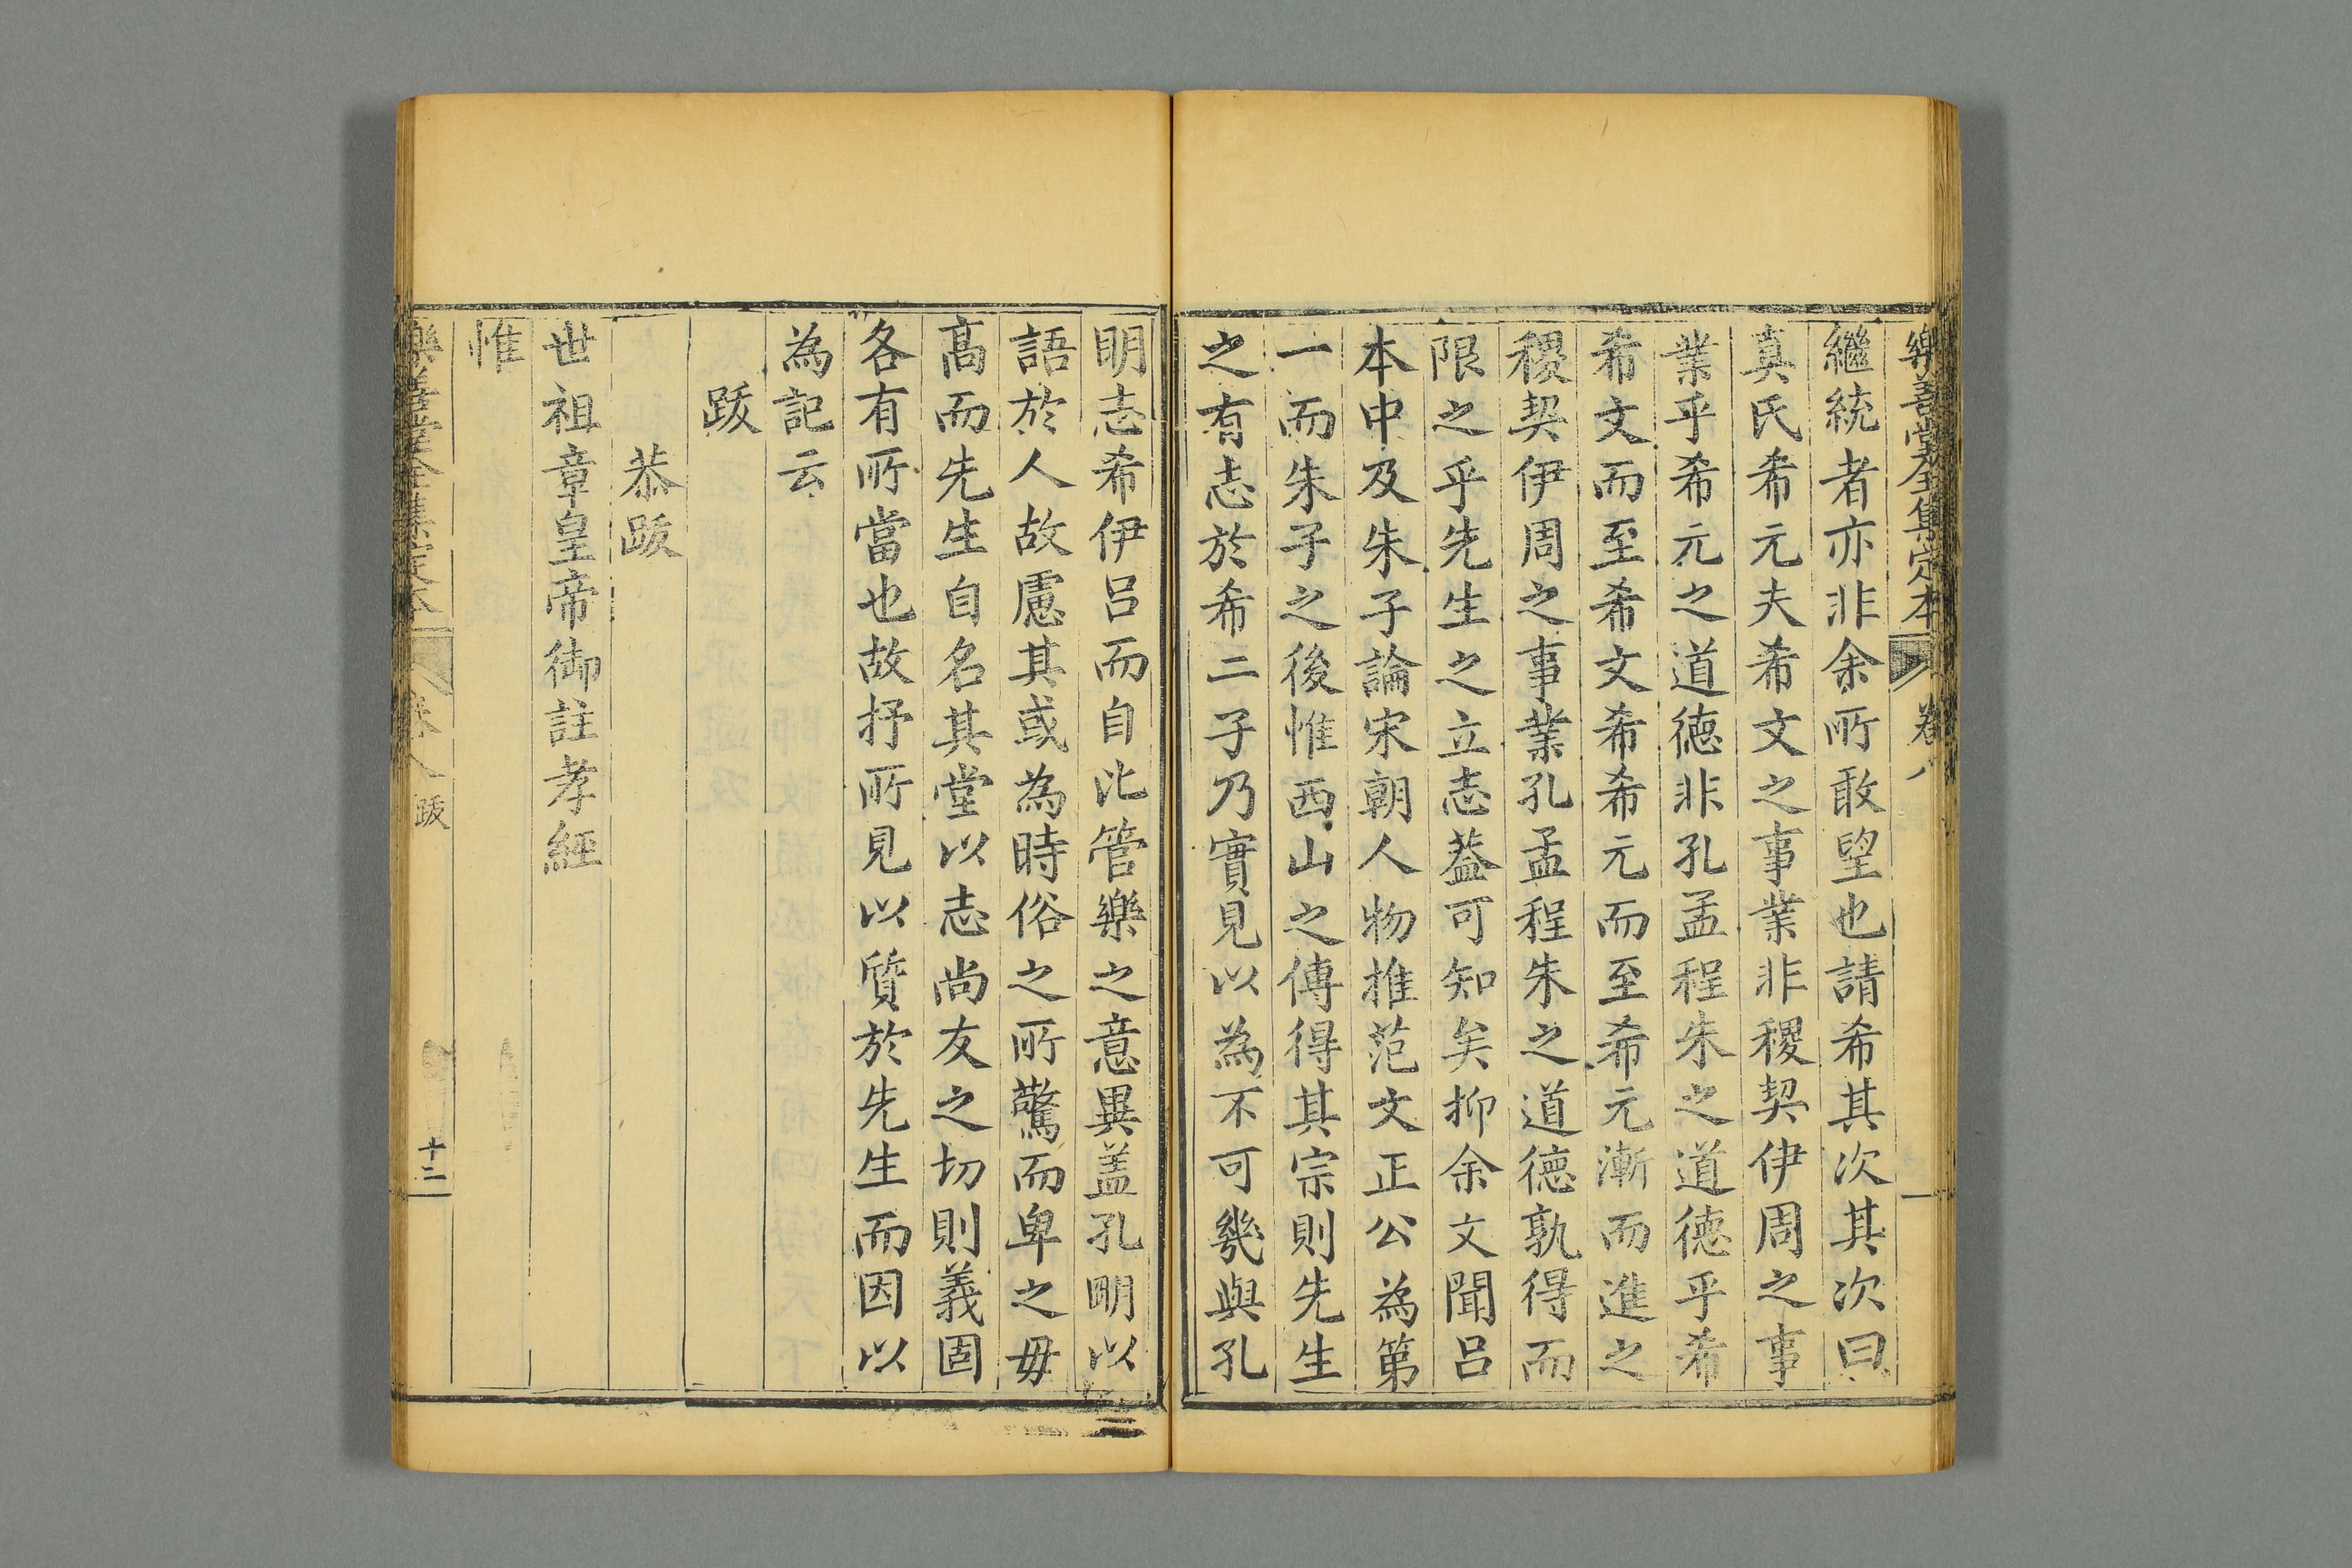 樂善堂全集定本 卷八
繼統者亦非余所敢望也請希其次其次曰
真氏希元夫希文之事業非稷契伊周之事
業乎希元之道德非孔孟程朱之道德乎希
希文而至希文希希元而至希元漸而進之
稷契伊周之事業孔孟程朱之道德孰得而
限之乎先生之立志葢可知矣抑余文聞呂
本中及朱子論宋朝人物推范文正公為第
一而朱子之後惟西山之傳得其宗則先生
之有志於希二子乃實見以為不可幾與孔
明志希伊呂而自比管樂之意異盖孔明以
語於人故慮其或為時俗之所驚而卑之毋
高而先生自名其堂以志尚友之切則義固
各有所當也故抒所見以質於先生而因以
為記云
跋
恭跋
世祖章皇帝御註孝經
惟
樂善堂全集定本 卷八 跋 十二